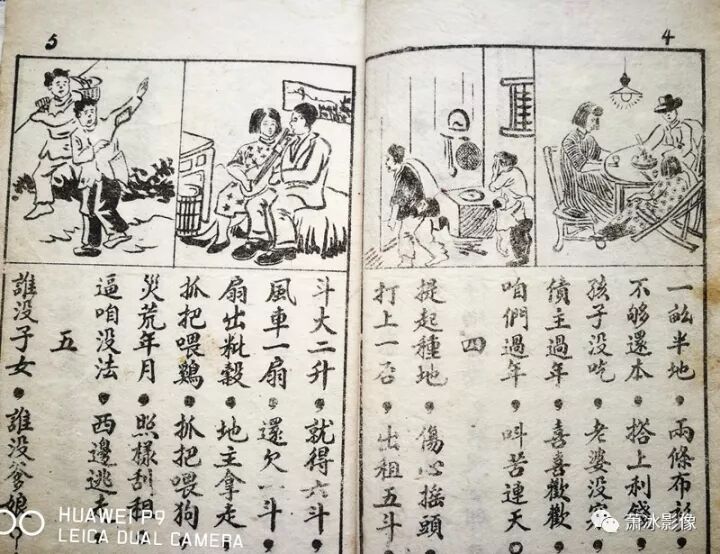 4
一畆半地，兩條布
不够還本，搭上利錢
孩子没吃，老婆没
債主過年，喜喜歡歡
咱們過年，叫苦連天。
四
提起種地，傷心搖頭
打上一石，出租五斗
5
斗大二升，就得六斗，
風車一扇，還欠一斗
扇出秕穀，地主拿走
抓把喂鷄，抓把喂狗
災荒年月，照樣刮租
逼咱没法，西邊逃
五
誰没子女，誰没爹娘？
HUAWEI P9
LEICA DUAL CAMERA
萧冰影像